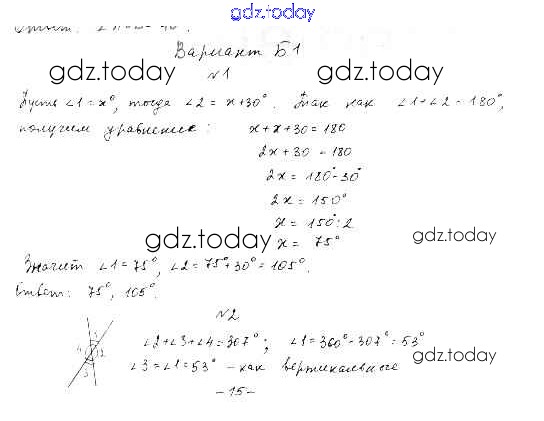 gdz.today
Вариант Б1
gdz.today gdz.today
№1
Пусть ∠1 = x°, тогда ∠2 = x + 30°. Так как ∠1 + ∠2 = 180°,
получим уравнение: x + x + 30 = 180
2x + 30 = 180
2x = 180° - 30°
2x = 150°
x = 150° : 2
gdz.today x = 75° gdz.today
Значит ∠1 = 75°, ∠2 = 75° + 30° = 105°.
Ответ: 75°, 105°.
№2
∠2 + ∠3 + ∠4 = 307°; ∠1 = 360° - 307° = 53°
4 1 2 3
gdz.today
∠3 = ∠1 = 53° - как вертикальные
- 15 -